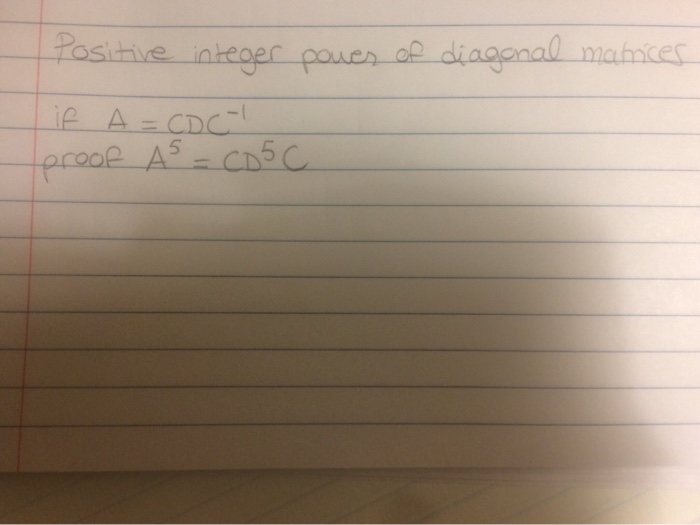 Positive integer power of diagonal matrices
if A = CDC⁻¹
proof A⁵ = CD⁵C